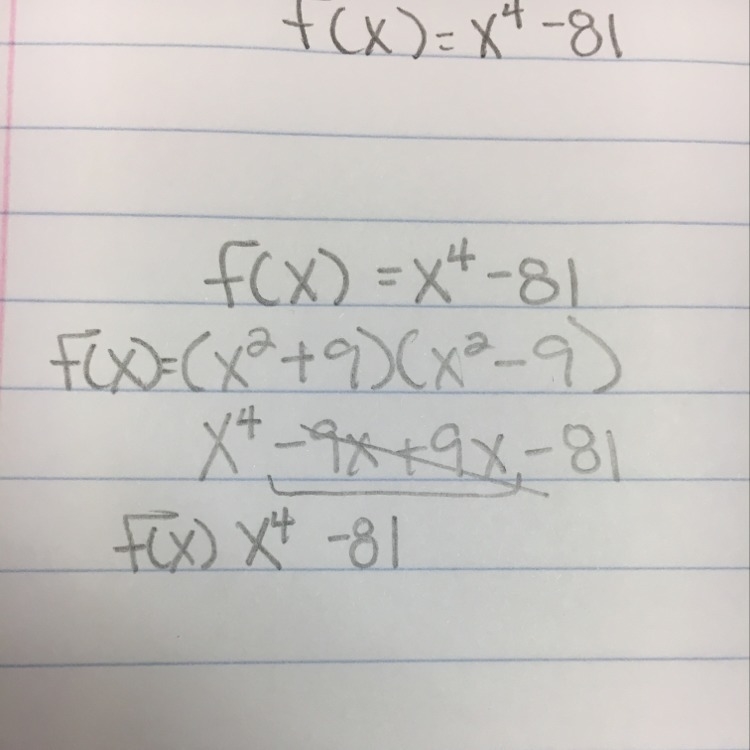 f(x)=x⁴-81
f(x)=x⁴-81
f(x)=(x²+9)(x²-9)
x⁴-9x+9x-81
f(x) x⁴ -81